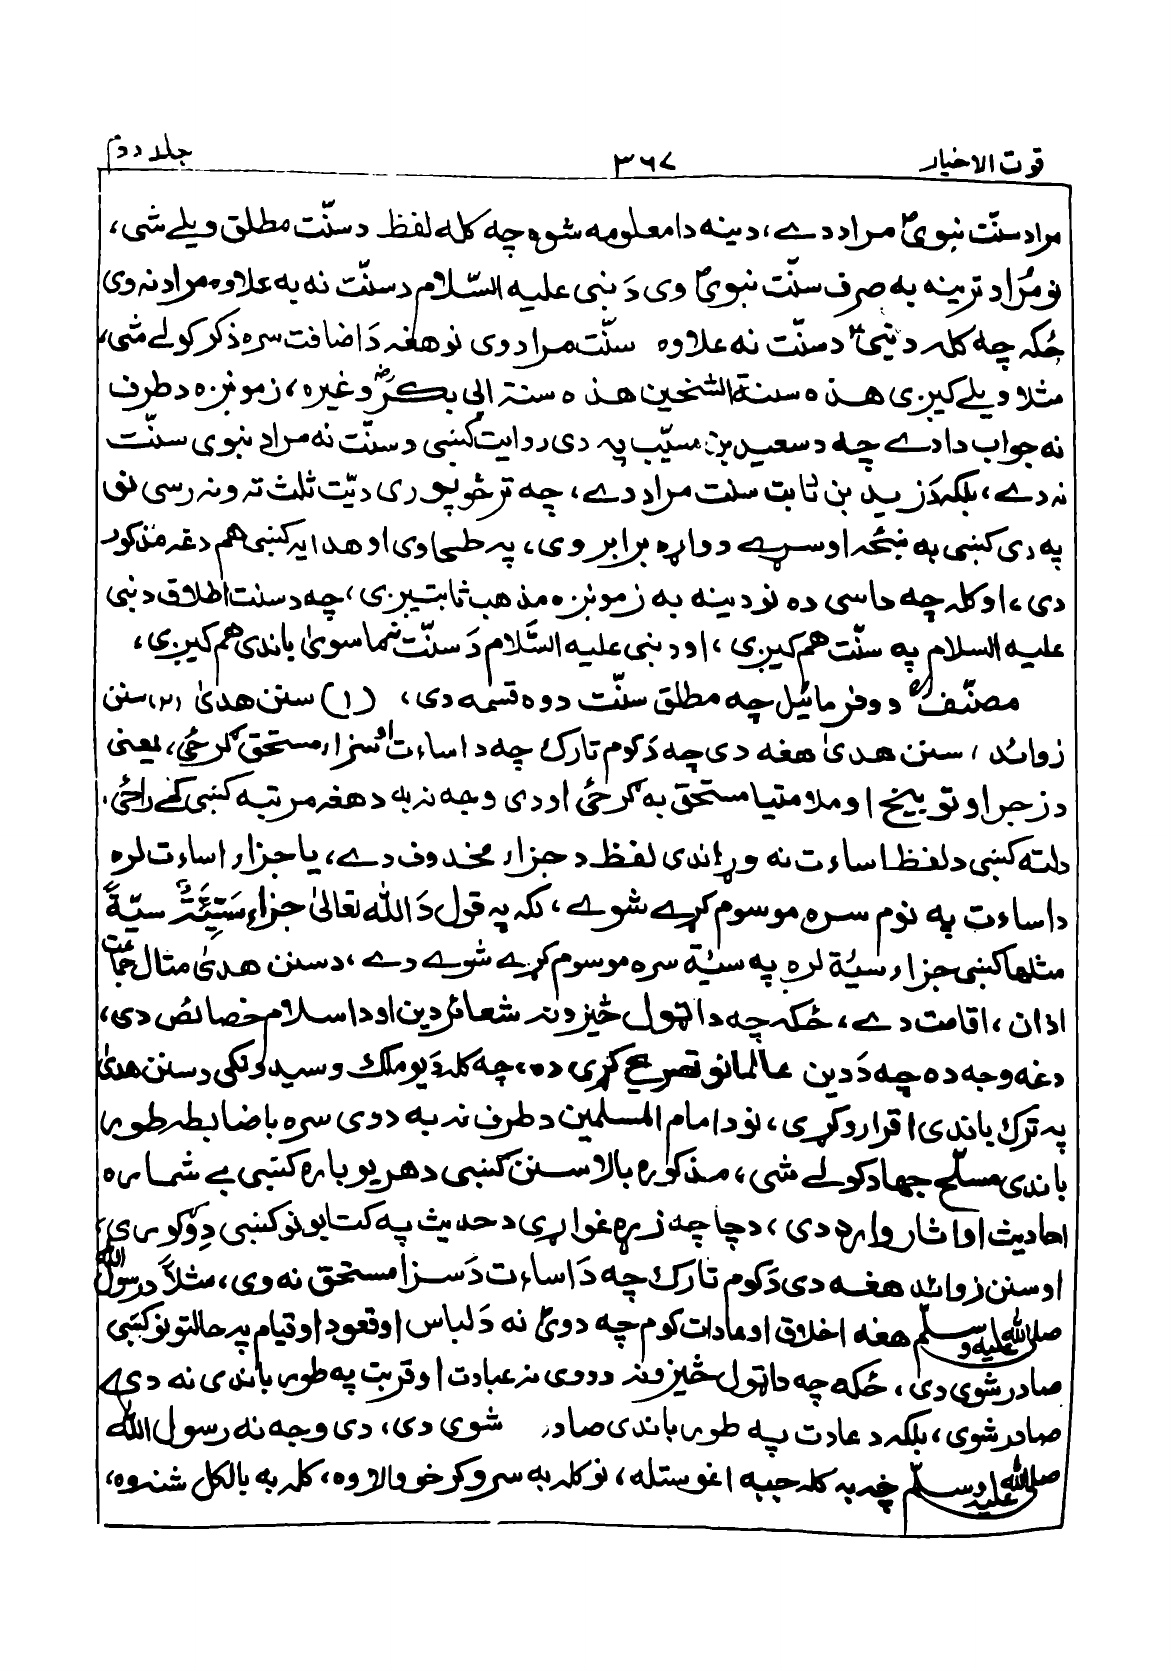 قوت الاخیار ۳۶۷ جلد دوم
مراد سنّت نبویؐ مراد دے، دینه دا معلومه شوه چه کله لفظ د سنّت مطلق ویلے شی،
نو مُراد ترینه به صرف سنّت نبویؐ وی دَ نبی علیه السّلام د سنّت نه به علاوه مراد نه وی
ځکه چه کله د نبیؐ د سنّت نه علاوه سنّت مراد وی نو هغه دَ اضافت سره ذکر کولے شی،
مثلا ویلے کیږی هذه سنة الشخین هذه سنة ابی بکرؓ وغیره، زمونږه د طرف
نه جواب دا دے چه د سعید بن مسیّب په دی روایت کښی د سنّت نه مراد نبوی سنّت
نه دے، بلکه دَ زید بن ثابت سنت مراد دے، چه تر څو پوری دیّت ثلث ته ونه رسی نو
په دی کښی به ښځه او سړے دواړه برابر وی، په طحاوی او هدایه کښی هم دغه مذکور
دی، او کله چه داسی ده نو دینه به زمونږه مذهب ثابتیږی، چه د سنت اطلاق د نبی
علیه السلام په سنّت هم کیږی، او د نبی علیه السّلام دَ سنّت نه ماسویٰ باندی هم کیږی،
مصنّفؒ دو فرمائیل چه مطلق سنّت دوه قسمه دی، (۱) سنن هدیٰ (۲) سنن
زوائد، سنن هدیٰ هغه دی چه دَ کوم تارک چه د اساءت او سزاء مستحق ګرځی، یعنی
د زجر او توبیخ او ملامتیا مستحق به ګرځی او دی وجه نه به د هغه مرتبه کښی کمے راځی،
دلته کښی د لفظ اساءت نه وړاندی لفظ د جزاء مخدوف دے، یا جزاء اساءت لره
د اساءت په نوم سره موسوم کړے شوے، لکه په قول دَ الله تعالیٰ جزاء سَیِّئَةٍ سیّةً
مثلها کښی جزاء سیّة لره په سیّة سره موسوم کړے شوے دے، د سنن هدیٰ مثال جماعت
اذان، اقامت دے، ځکه چه دا ټول څیزونه شعائر دین او د اسلام خصائص دی،
دغه وجه ده چه دَ دین عالمانو تصریح کړی ده، چه کله دَ یو ملک وسیدونکی د سنن هدیٰ
په ترک باندی اقرار وکړی، نو د امام المسلمین د طرف نه به دوی سره باضابطه طور
باندی مسلّح جهاد کولے شی، مذکوره بالا سنن کښی د هر یو باره کښی بے شماره
احادیث او اثار وارد دی، د چا چه زړه غواړی د حدیث په کتابونو کښی دِ وګوری،
او سنن زوائد هغه دی دَ کوم تارک چه دَ اساءت دَ سزا مستحق نه وی، مثلاً د رسول الله
صلی الله علیه وسلّم هغه اخلاق او عادات کوم چه دویؐ نه دَ لباس او قعود او قیام په حالتونو کښی
صادر شوی دی، ځکه چه دا ټول څیزونه د دوی نه عبادت او قربت په طور باندی نه دی
صادر شوی، بلکه د عادت په طور باندی صادر شوی دی، دی وجه نه رسول الله
صلی الله علیه وسلّم چه به کله جبه اغوستله، نو کله به سرو کرخو والا وه، کله به بالکل شنه وه،